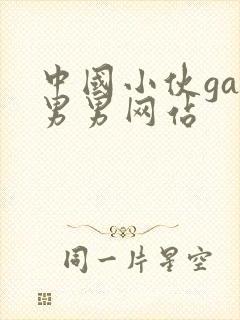 中國小伙ga
男男网佔
同一片星空